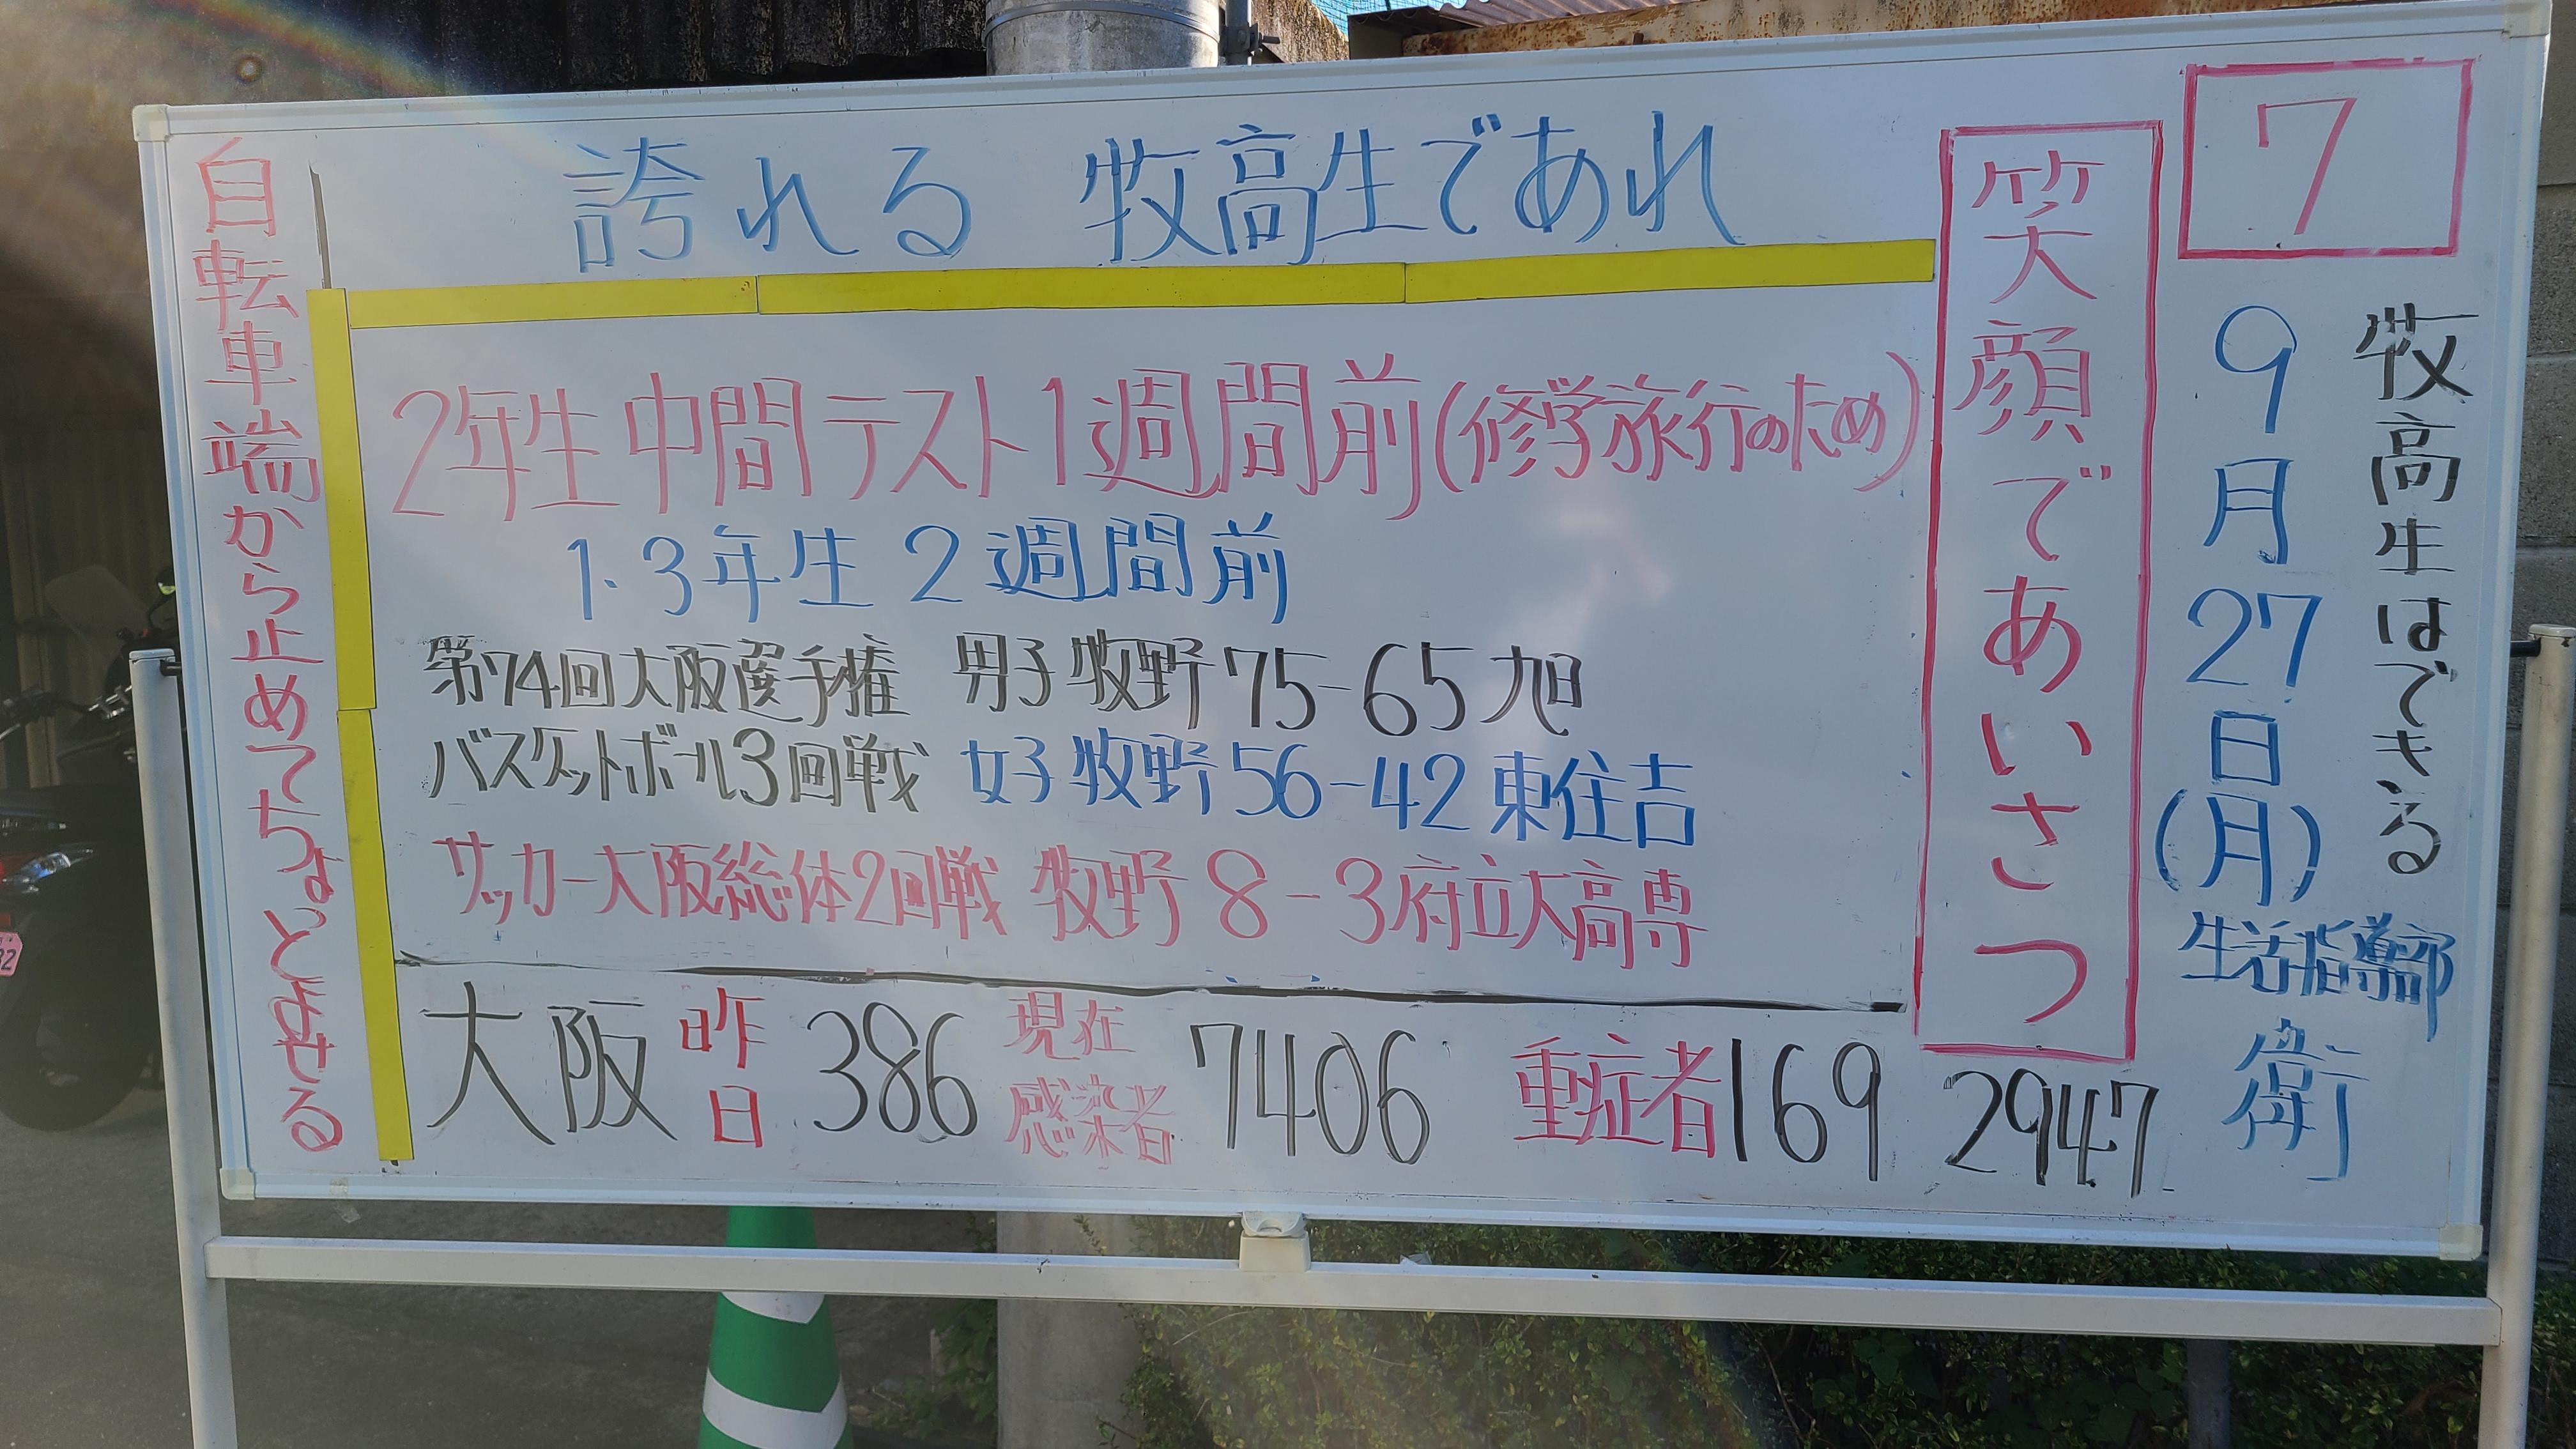 7
牧高生はできる
9月27日(月)
生活指導部
衛
笑顔であいさつ
誇れる 牧高生であれ
2年生中間テスト1週間前(修学旅行のため)
1.3年生 2週間前
第74回大阪選手権 男子 牧野 75-65 旭
バスケットボール3回戦 女子 牧野 56-42 東住吉
サッカー大阪総体2回戦 牧野 8-3 府立大高専
大阪 昨日 386 現在感染者 7406 重症者 169 2947
自転車端から止めてちょとよせる
32